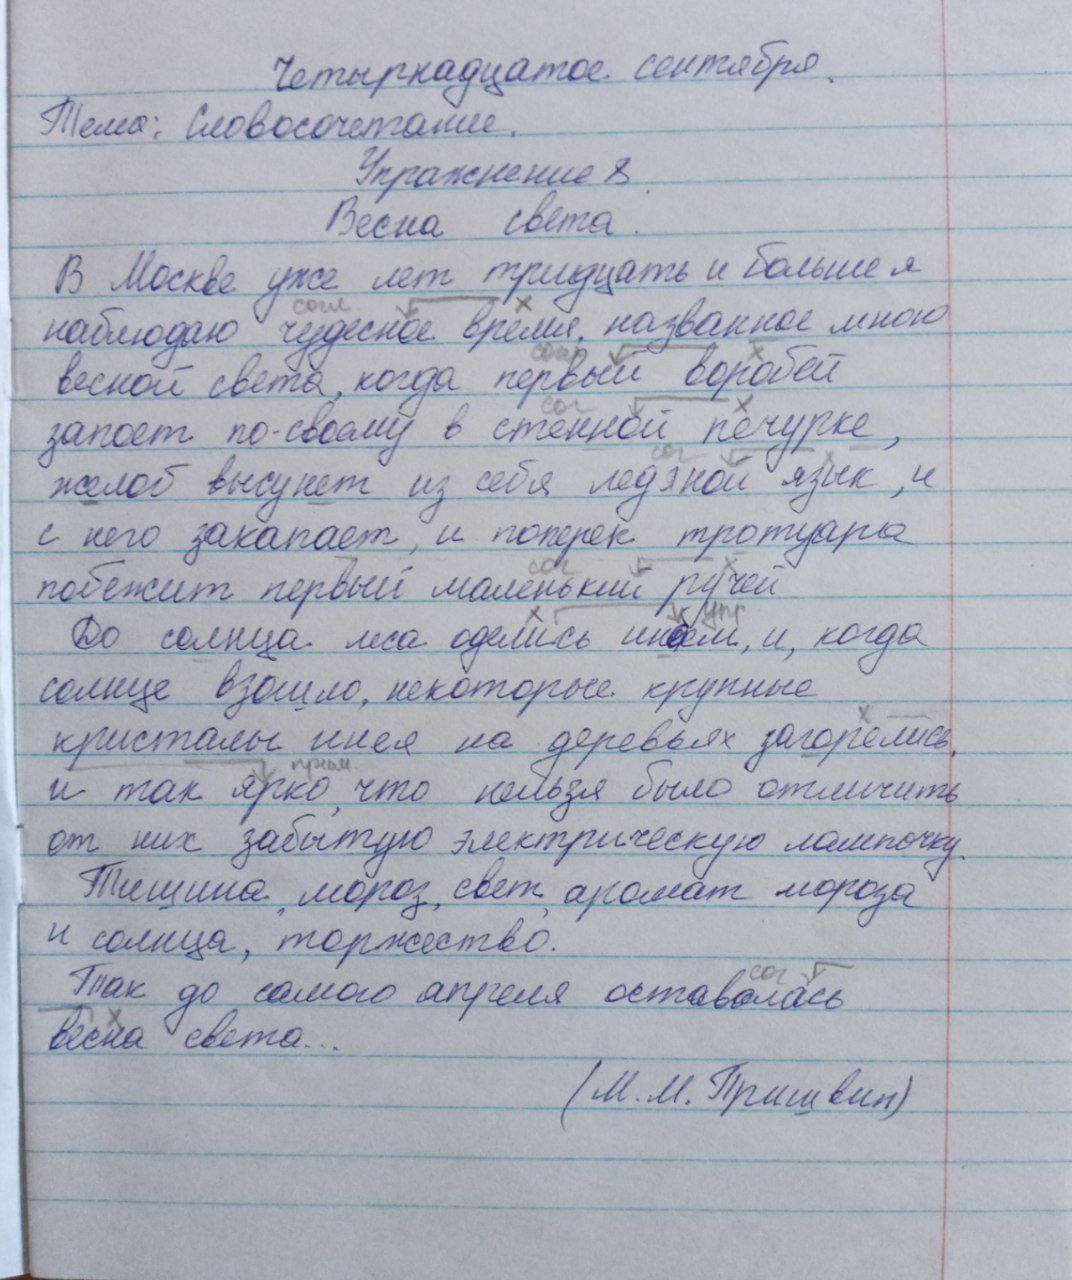 Четыркадцатое сентября.
Тема: Словосочетание.
Упражнение 8.
Весна света.
В Москве уже лет тридцать и больше я
согл х
наблюдаю чудесное время, названное мною
согл х
весной света, когда первый воробей
сог х
запоет по-своему в стенной печурке,
сог х
желоб высунет из себя ледяной язык, и
с него закапает, и поперек тротуара
сог х
побежит первый маленький ручей
х упр
До солнца леса оделись инеем, и, когда
солнце взошло, некоторые крупные
х
кристалы инея на деревьях загорелись,
прим.
и так ярко, что нельзя было отличить
от них забытую электрическую лампочку.
Тишина, мороз, свет, аромат мороза
и солнца, торжество.
сог
Так до самого апреля оставалась
х
весна света...
(М. М. Пришвин)